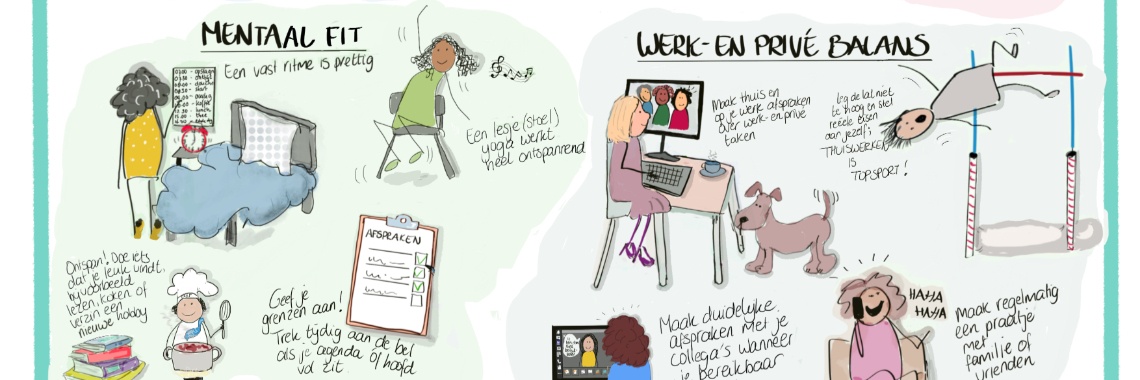 MENTAAL FIT
Een vast ritme is prettig
Een lesje (stoel)
yoga werkt
heel ontspannend
Ontspan! Doe iets
dat je leuk vindt,
bijvoorbeeld
lezen, koken of
verzin een
nieuwe hobby
AFSPRAKEN
Geef je
grenzen aan!
Trek tijdig aan de bel
als je agenda of hoofd
vol zit
WERK- EN PRIVÉ BALANS
Maak thuis en
op je werk afspraken
over werk- en privé
taken
Leg de lat niet
te hoog en stel
reële eisen
aan jezelf;
THUISWERKEN
IS
TOPSPORT!
Maak duidelijke
afspraken met je
collega's wanneer
je bereikbaar
HAHA
HAHA
Maak regelmatig
een praatje
met
familie of
vrienden